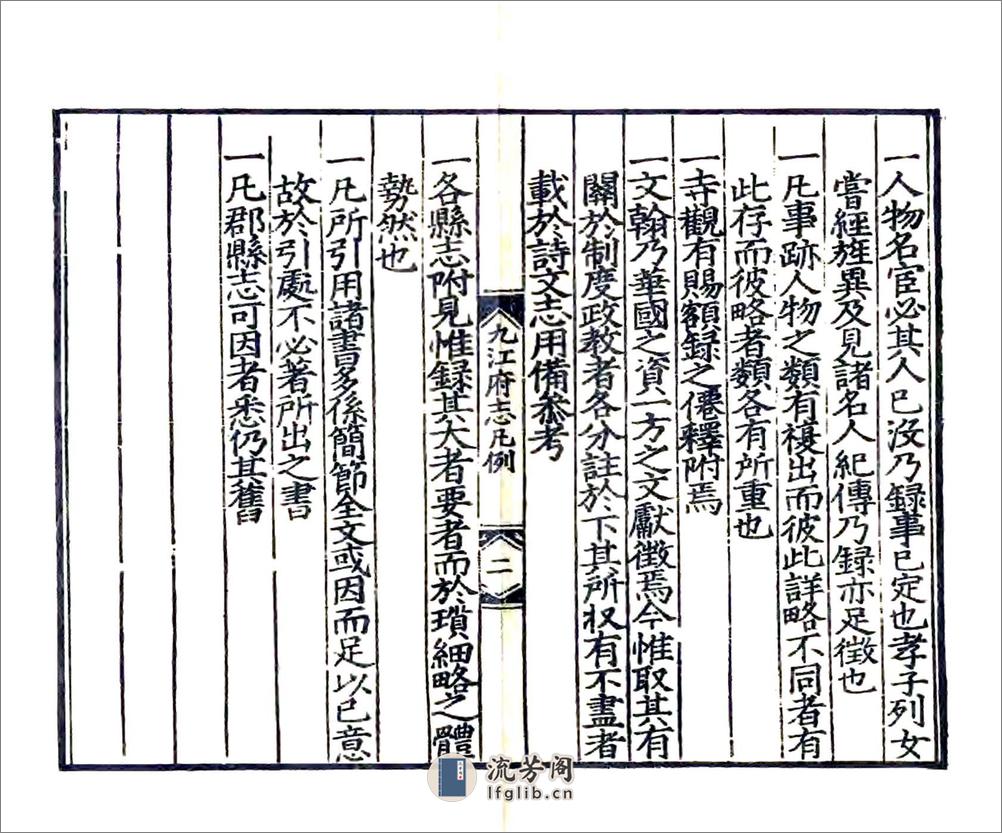 一人物名宦必其人已沒乃録事已定也孝子列女
嘗經旌異及見諸名人紀傳乃録亦足徵也
一凡事跡人物之類有複出而彼此詳略不同者有
此存而彼略者類各有所重也
一寺觀有賜額録之僊釋附焉
一文翰乃華國之資一方之文獻徵焉今惟取其有
關於制度政教者各分註於下其所收有不盡者
載於詩文志用備叅考
九江府志凡例
二
一各縣志附見惟録其大者要者而於瑣細略之體
勢然也
一凡所引用諸書多係簡節全文或因而足以己意
故於引處不必著所出之書
一凡郡縣志可因者悉仍其舊
流芳阁
lfglib.cn